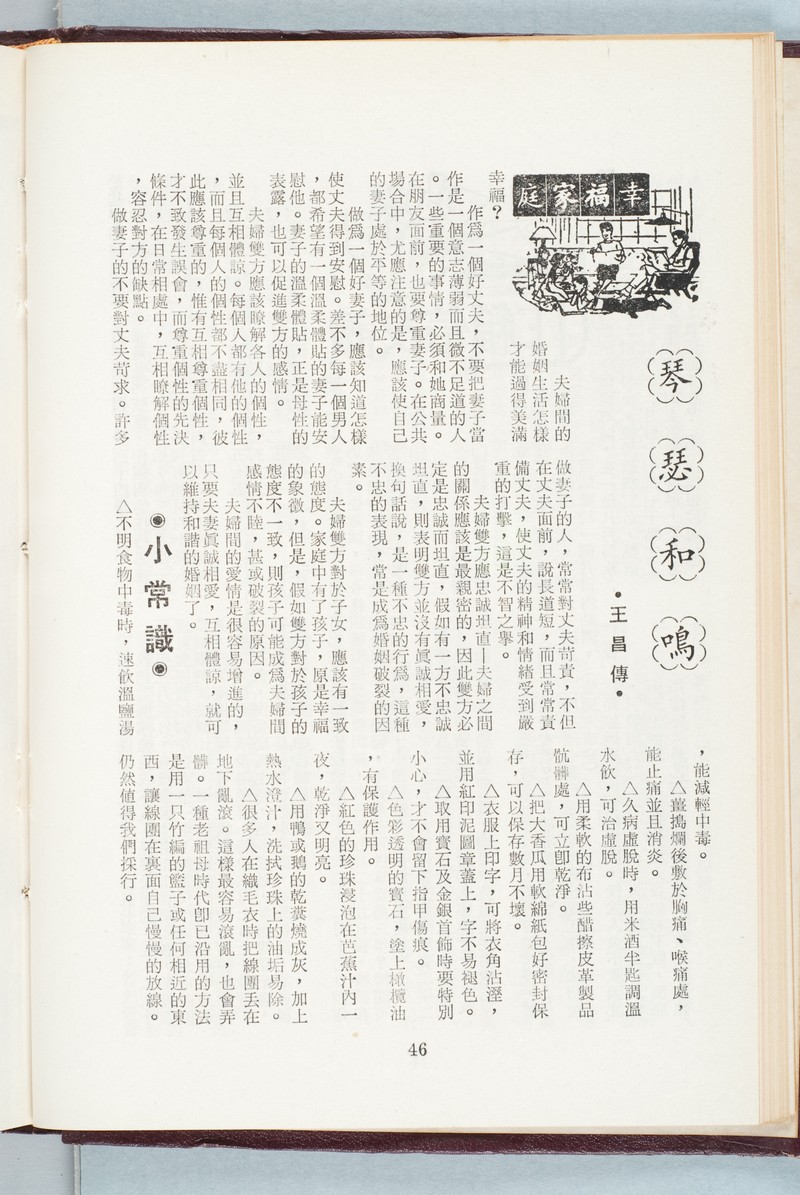 幸福家庭
琴瑟和鳴
•王昌傳•
夫婦間的
婚姻生活怎樣
才能過得美滿
幸福？
作爲一個好丈夫，不要把妻子當
作是一個意志薄弱而且微不足道的人
。一些重要的事情，必須和她商量。
在朋友面前，也要尊重妻子。在公共
場合中，尤應注意的是，應該使自己
的妻子處於平等的地位。
做爲一個好妻子，應該知道怎樣
使丈夫得到安慰。差不多每一個男人
，都希望有一個溫柔體貼的妻子能安
慰他。妻子的溫柔體貼，正是母性的
表露，也可以促進雙方的感情。
夫婦雙方應該瞭解各人的個性，
並且互相體諒。每個人都有他的個性
，而且每個人的個性都不盡相同，彼
此應該尊重的，惟有互相尊重個性，
才不致發生誤會，而尊重個性的先決
條件，在日常相處中，互相瞭解個性
，容忍對方的缺點。
做妻子的不要對丈夫苛求。許多
做妻子的人，常常對丈夫苛責，不但
在丈夫面前，說長道短，而且常常責
備丈夫，使丈夫的精神和情緒受到嚴
重的打擊，這是不智之擧。
夫婦雙方應忠誠坦直—夫婦之間
的關係應該是最親密的，因此雙方必
定是忠誠而坦直，假如有一方不忠誠
坦直，則表明雙方並沒有眞誠相愛，
換句話說，是一種不忠的行爲，這種
不忠的表現，常是成爲婚姻破裂的因
素。
夫婦雙方對於子女，應該有一致
的態度。家庭中有了孩子，原是幸福
的象徵，但是，假如雙方對於孩子的
態度不一致，則孩子可能成爲夫婦間
感情不睦，甚或破裂的原因。
夫婦間的愛情是很容易增進的，
只要夫妻眞誠相愛，互相體諒，就可
以維持和諧的婚姻了。
◉小常識◉
△不明食物中毒時，速飲溫鹽湯
，能減輕中毒。
△薑搗爛後敷於胸痛、喉痛處，
能止痛並且消炎。
△久病虛脫時，用米酒半匙調溫
水飲，可治虛脫。
△用柔軟的布沾些醋擦皮革製品
骯髒處，可立卽乾淨。
△把大香瓜用軟綿紙包好密封保
存，可以保存數月不壞。
△衣服上印字，可將衣角沾溼，
並用紅印泥圖章蓋上，字不易褪色。
△取用寶石及金銀首飾時要特別
小心，才不會留下指甲傷痕。
△色彩透明的寶石，塗上橄欖油
，有保護作用。
△紅色的珍珠浸泡在芭蕉汁內一
夜，乾淨又明亮。
△用鴨或鵝的乾糞燒成灰，加上
熱水澄汁，洗拭珍珠上的油垢易除。
△很多人在織毛衣時把線團丟在
地下亂滾。這樣最容易滾亂，也會弄
髒。一種老祖母時代卽已沿用的方法
是用一只竹編的籃子或任何相近的東
西，讓線團在裏面自己慢慢的放線。
仍然値得我們採行。
46